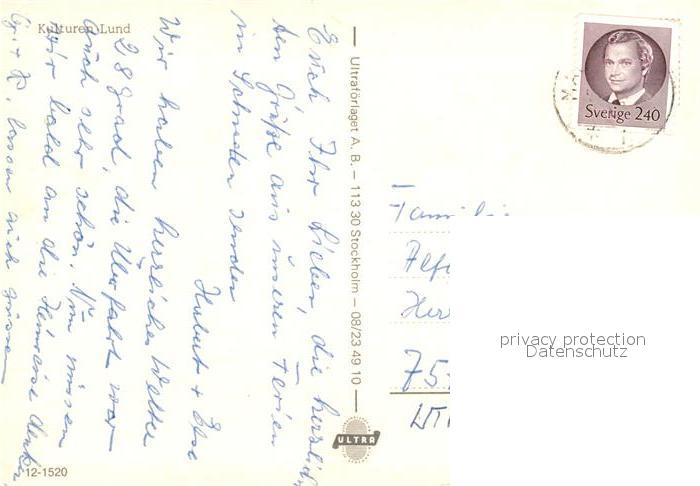 Kulturen Lund
Euch Ihr Lieben, die herzlich
ten Grüße aus unseren Ferien
in Schweden senden
Hubert + Else
Wir haben herrliches Wetter
28 Grad, die Überfahrt war
auch sehr schön. Nun müssen
wir bald an die Heimreise denken
lassen euch grüssen
Ultraförlaget A. B. – 113 30 Stockholm – 08/23 49 10
ULTRA
12-1520
Sverige 240
Familie
75
privacy protection
Datenschutz